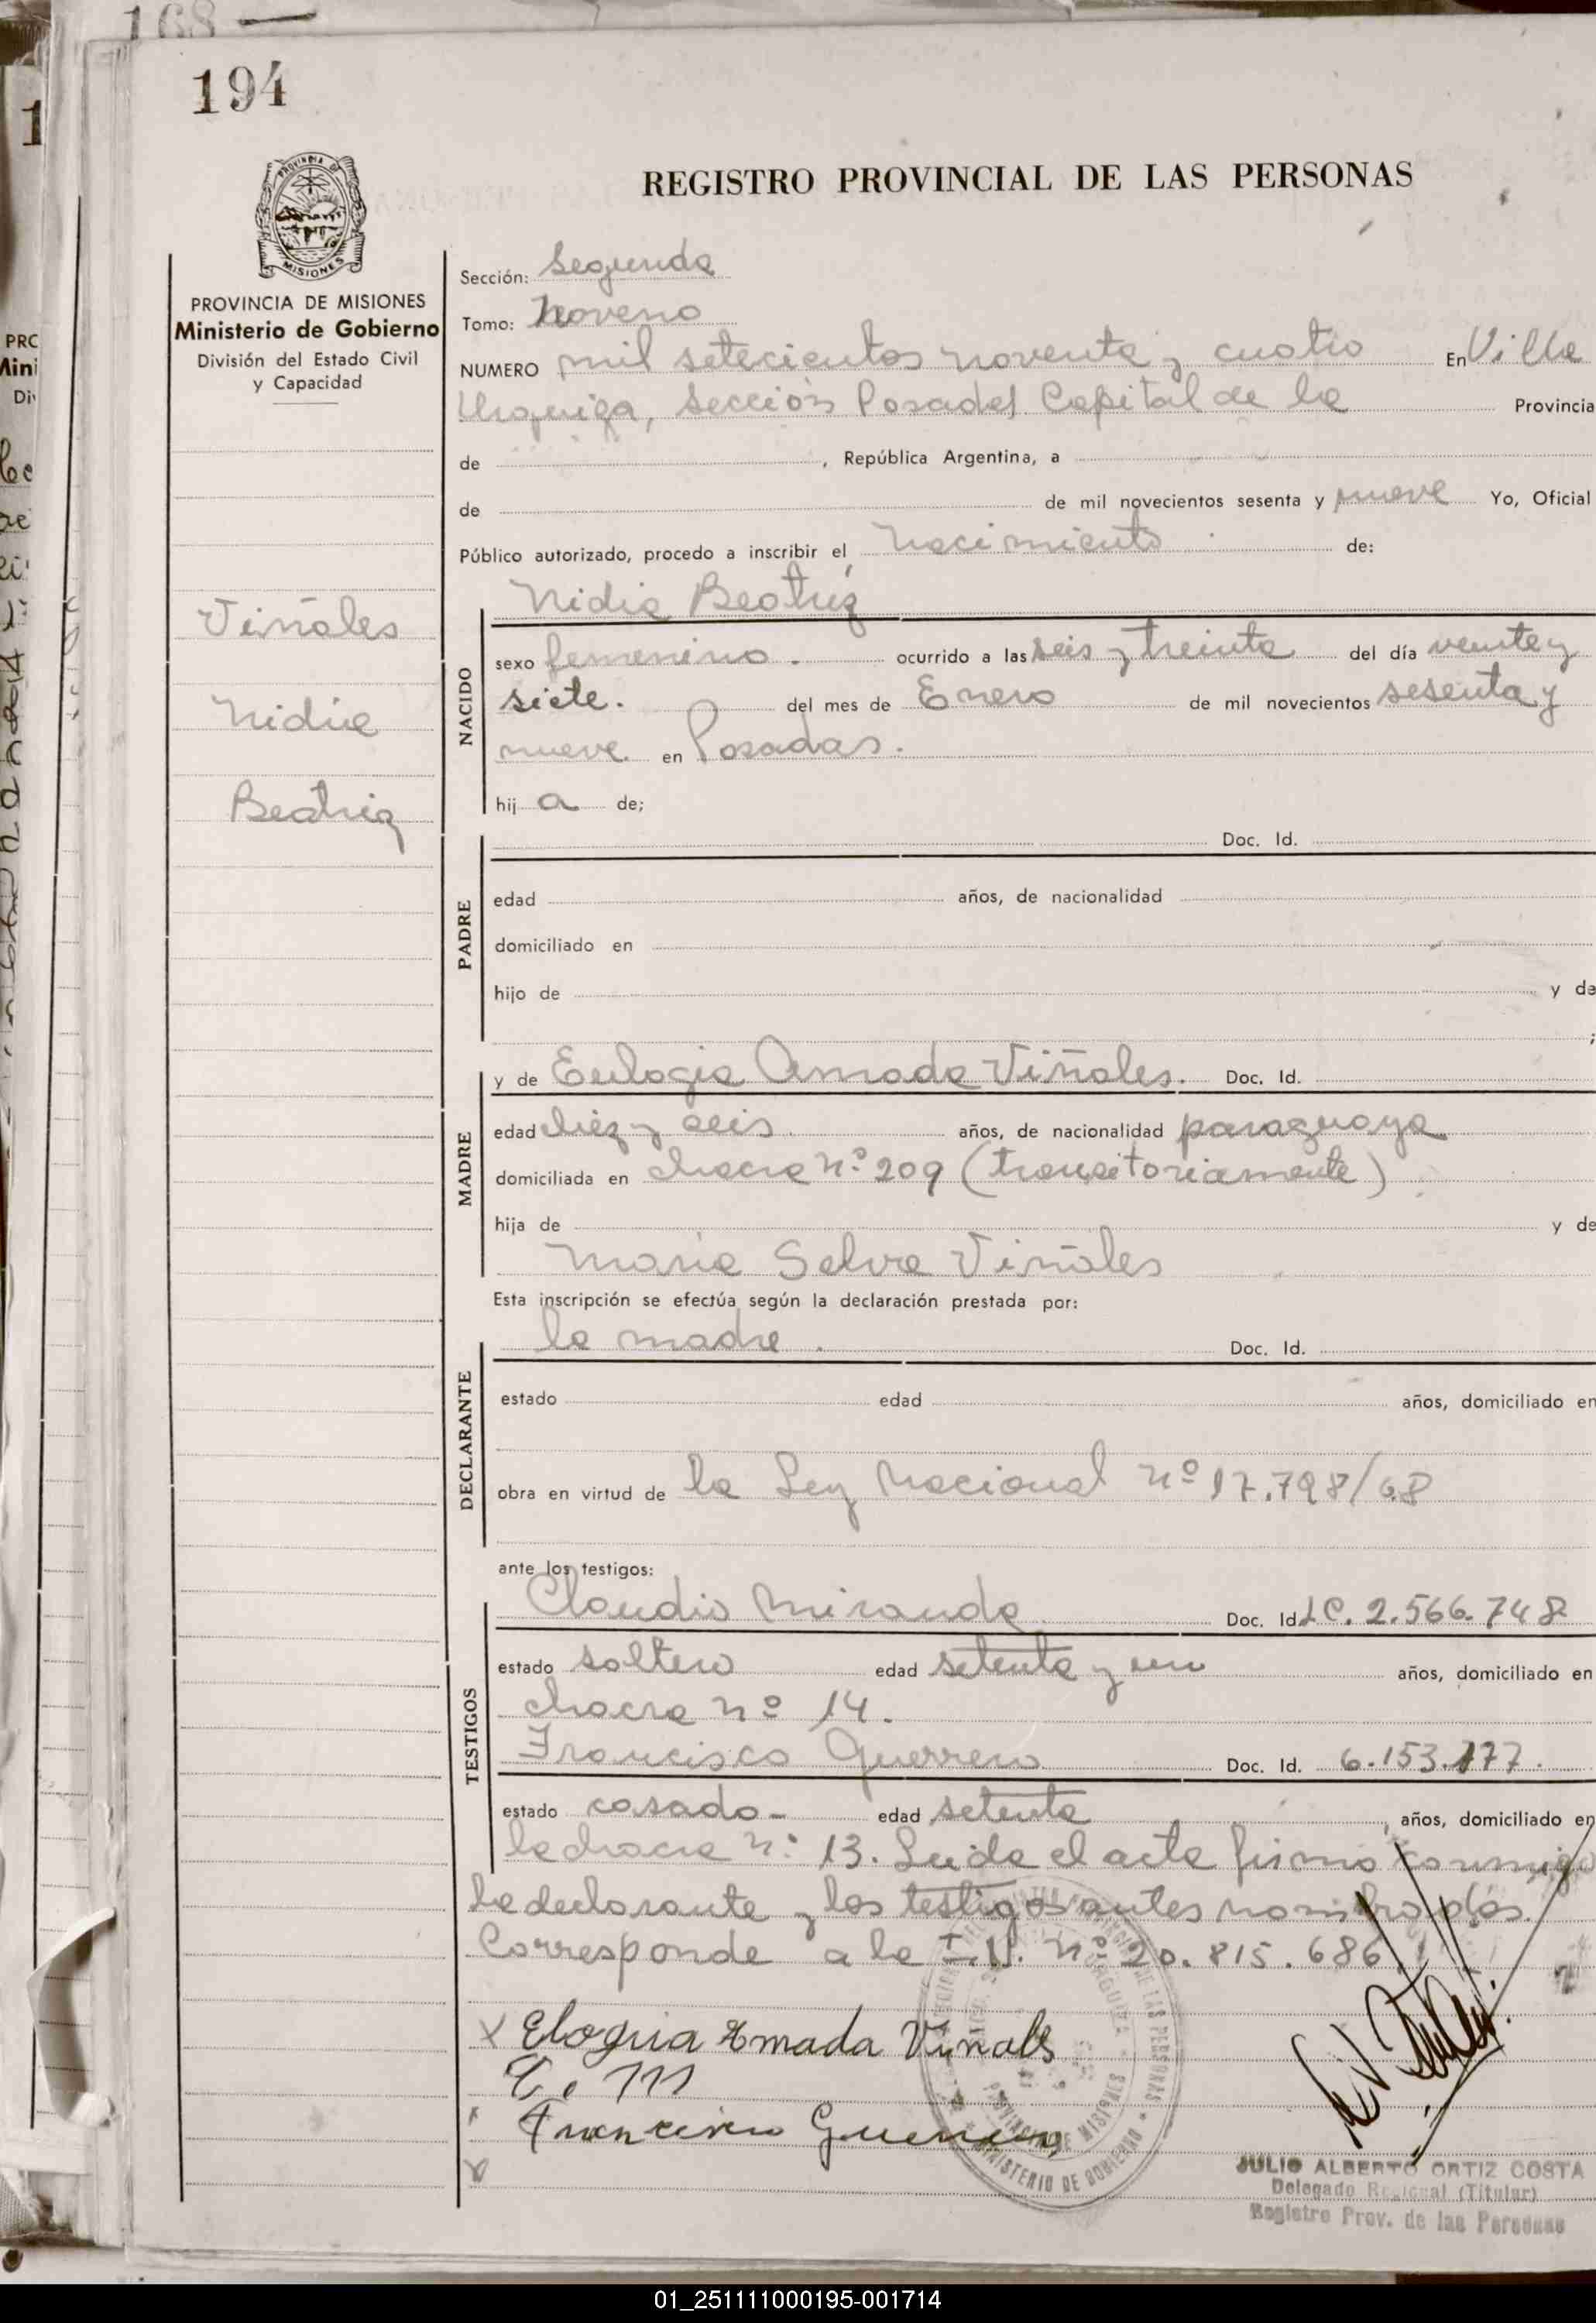 168 —
194
PROVINCIA DE
MISIONES
REGISTRO PROVINCIAL DE LAS PERSONAS
PROVINCIA DE MISIONES
Ministerio de Gobierno
División del Estado Civil
y Capacidad
Viñales
Nidia
Beatriz
Sección: Segunda
Tomo: Noveno
NUMERO mil setecientos noventa y cuatro En Villa
Urquiza, Sección Posadas Capital de la Provincia
de , República Argentina, a
de de mil novecientos sesenta y nueve Yo, Oficial
Público autorizado, procedo a inscribir el nacimiento de:
NACIDO
Nidia Beatriz
sexo femenino. ocurrido a las seis y treinta del día veinte y
siete. del mes de Enero de mil novecientos sesenta y
nueve en Posadas.
hij a de;
PADRE
Doc. Id.
edad años, de nacionalidad
domiciliado en
hijo de y de
;
MADRE
y de Eulogia Amada Viñales. Doc. Id.
edad diez y seis años, de nacionalidad paraguaya
domiciliada en chacra nº 209 (transitoriamente)
hija de y de
Maria Selva Viñales
Esta inscripción se efectúa según la declaración prestada por:
DECLARANTE
la madre. Doc. Id.
estado edad años, domiciliado en
obra en virtud de la Ley Nacional nº 17.798/68
ante los testigos:
TESTIGOS
Claudio Miranda Doc. Id. LC. 2.566.748
estado soltero edad setenta y un años, domiciliado en
chacra nº 14.
Francisco Guerrero Doc. Id. 6.153.177.
estado casado- edad setenta, años, domiciliado en
la chacra nº 13. Leida el acta firmó conmigo
la declarante y los testigos antes nombrados.
Corresponde a la I.N. nº 20.815.686
x Elogia Amada Viñals
Francisco Guerrero
PROVINCIA DE MISIONES
MINISTERIO DE GOBIERNO
JULIO ALBERTO ORTIZ COSTA
Delegado Regional (Titular)
Registro Prov. de las Personas
01_251111000195-001714